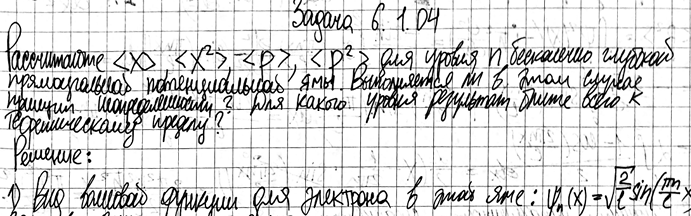 Задача 6.1.04
Рассчитайте <x> <x²>, <p>, <p²> для уровня n бесконечно глубокой
прямоугольной потенциальной ямы. Выполняется ли в этом случае
принцип неопределенности? Для какого уровня результат ближе всего к
теоретическому пределу?
Решение:
1) Вид волновой функции для электрона в этой яме: ψₙ(x) = √(2/ℓ) sin(πn/ℓ x